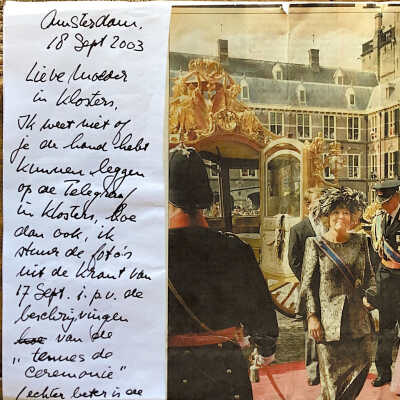 Amsterdam.
18 Sept 2003
Lieve Moeder
in Klosters,
Ik weet niet of
je de hand hebt
kunnen leggen
op de Telegraaf
in Klosters, hoe
dan ook, ik
stuur de foto's
uit de krant van
17 Sept. i.p.v. de
beschrijvingen
van de
„ tenues de
ceremonie "
/echter beter is de